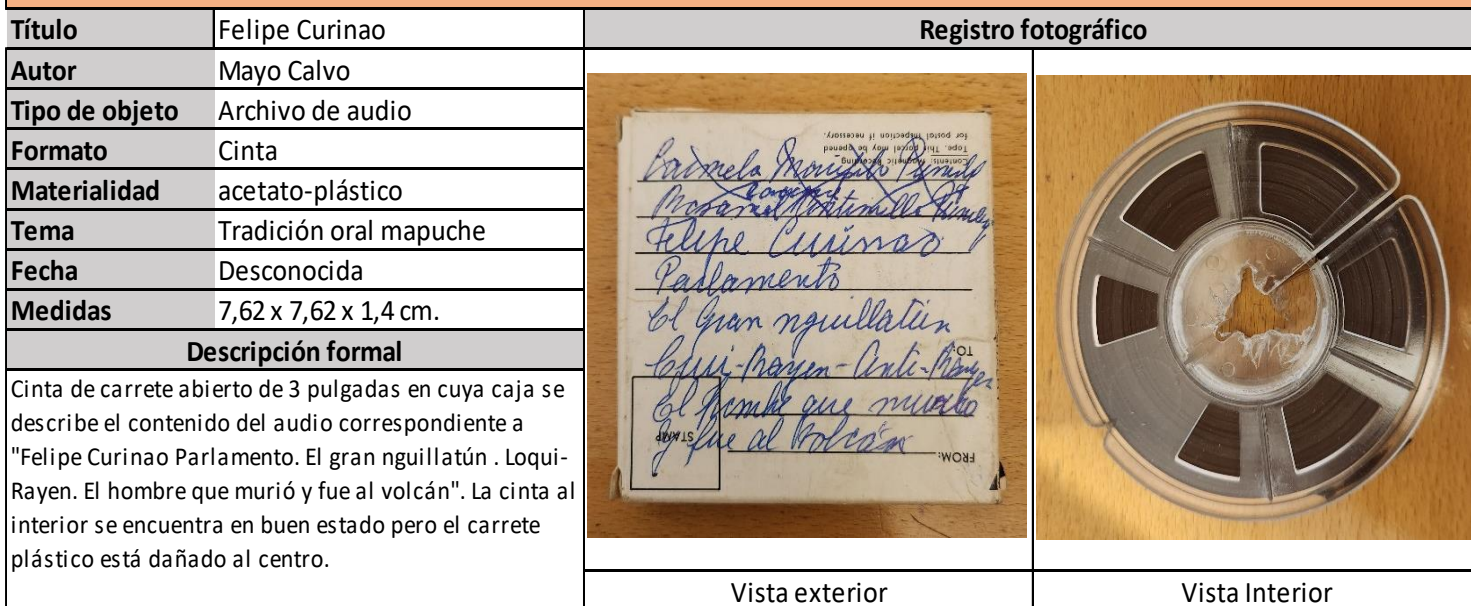 Título Felipe Curinao
Registro fotográfico
Autor Mayo Calvo
Tipo de objeto Archivo de audio
Formato Cinta
Materialidad acetato-plástico
Tema Tradición oral mapuche
Fecha Desconocida
Medidas 7,62 x 7,62 x 1,4 cm.
Descripción formal
Cinta de carrete abierto de 3 pulgadas en cuya caja se
describe el contenido del audio correspondiente a
"Felipe Curinao Parlamento. El gran nguillatún . Loqui-
Rayen. El hombre que murió y fue al volcán". La cinta al
interior se encuentra en buen estado pero el carrete
plástico está dañado al centro.
Contents: Magnetic Recording
Tape. This parcel may be opened
for postal inspection if necessary.
Felipe Curinao
Parlamento
El Gran nguillatún
TO:
El hombre que
y fue al volcán
STAMP
FROM:
Vista exterior
Vista Interior